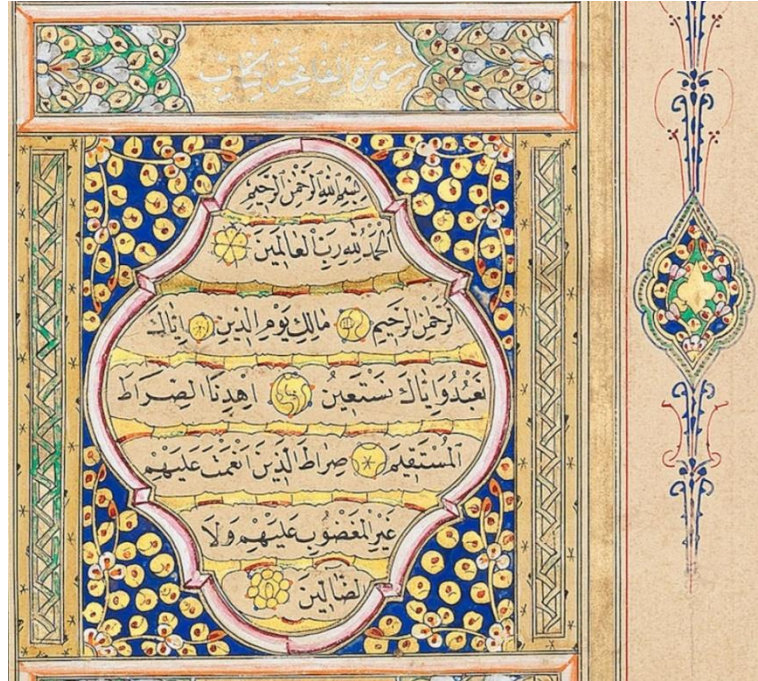 سورة الفاتحة الكتاب
بسم الله الرحمن الرحيم
الحمد لله رب العالمين
الرحمن الرحيم مالك يوم الدين اياك
نعبد واياك نستعين اهدنا الصراط
المستقيم صراط الذين انعمت عليهم
غير المغضوب عليهم ولا
الضالين